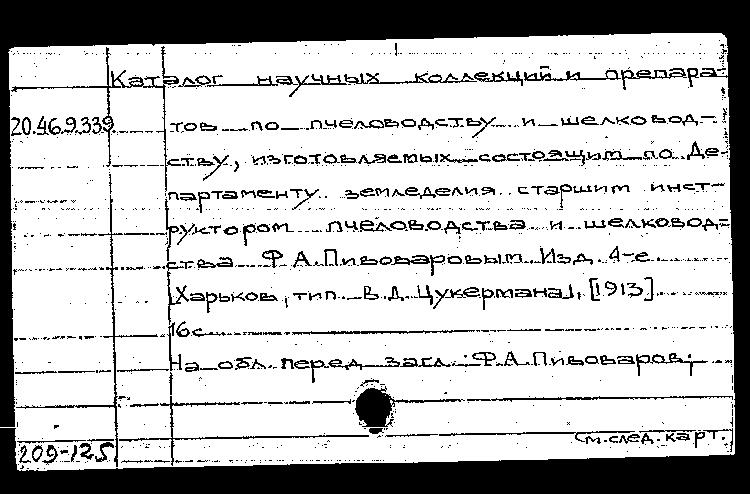 Каталог научных коллекций и препара-
20.46.9.339 тов по пчеловодству и шелковод-
ству, изготовляемых состоящим по Де-
партаменту земледелия старшим инст-
руктором пчеловодства и шелковод-
ства Ф.А.Пивоваровым Изд. 4-е
[Харьков, тип. В.Д. Цукермана], [1913]
16с.
На обл. перед загл.: Ф.А.Пивоваров;
См.след.карт.
209-125